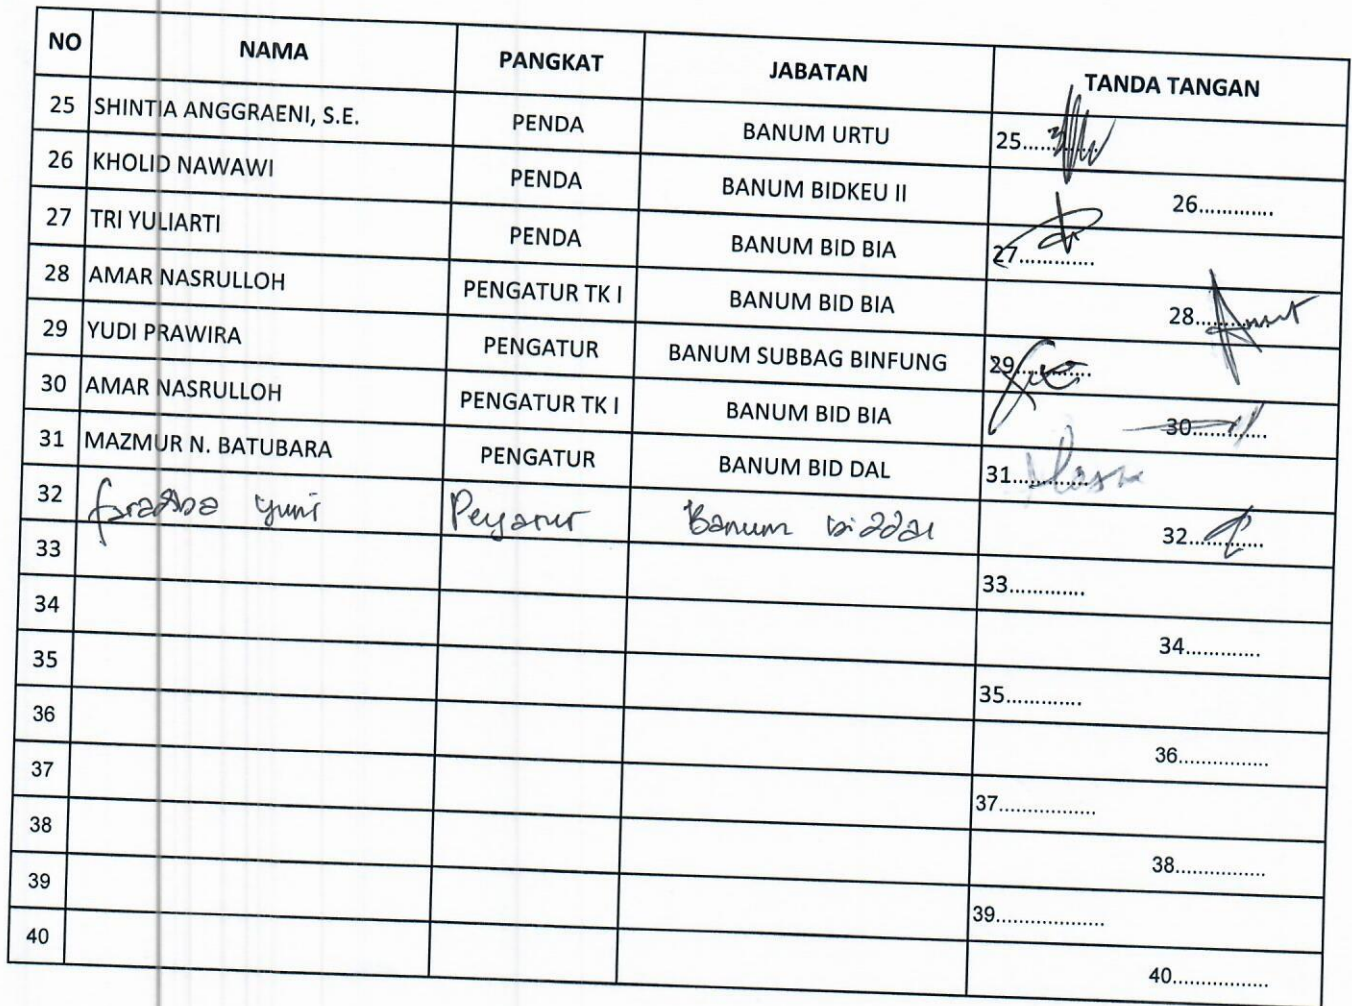 NO NAMA PANGKAT JABATAN TANDA TANGAN
25 SHINTIA ANGGRAENI, S.E. PENDA BANUM URTU 25.............
26 KHOLID NAWAWI PENDA BANUM BIDKEU II 26.............
27 TRI YULIARTI PENDA BANUM BID BIA 27.............
28 AMAR NASRULLOH PENGATUR TK I BANUM BID BIA 28.............
29 YUDI PRAWIRA PENGATUR BANUM SUBBAG BINFUNG 29.............
30 AMAR NASRULLOH PENGATUR TK I BANUM BID BIA 30.............
31 MAZMUR N. BATUBARA PENGATUR BANUM BID DAL 31.............
32 yuni Pengatur Banum biddal 32.............
33 33.............
34 34.............
35 35.............
36 36................
37 37.................
38 38...............
39 39..................
40 40................